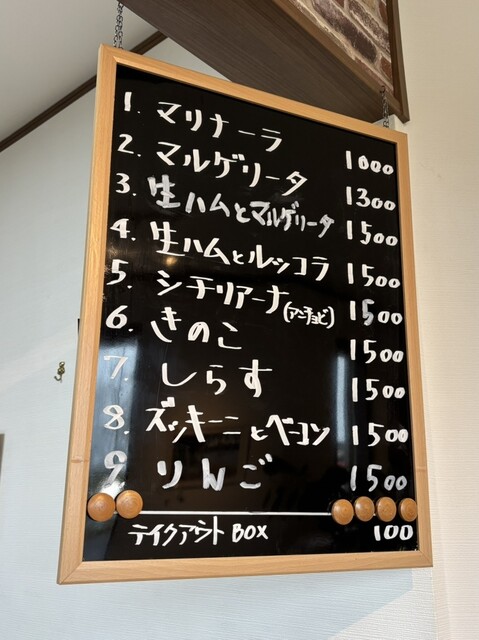 1. マリナーラ 1000
2. マルゲリータ 1300
3. 生ハムとマルゲリータ 1500
4. 生ハムとルッコラ 1500
5. シチリアーナ(アンチョビ) 1500
6. きのこ 1500
7. しらす 1500
8. ズッキーニとベーコン 1500
9 りんご 1500
テイクアウトBOX 100